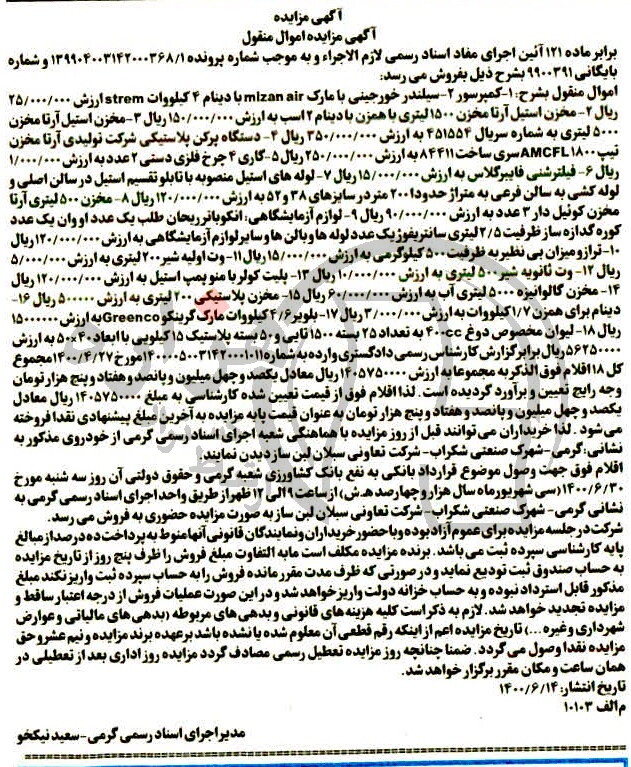 آگهی مزایده
آگهی مزایده اموال منقول
برابر ماده ۱۲۱ آئین اجرای مفاد اسناد رسمی لازم الاجراء و به موجب شماره پرونده ۱۳۹۹۰۴۰۰۳۱۴۲۰۰۰۳۶۸/۱ و شماره
بایگانی ۹۹۰۰۳۹۱ بشرح ذیل بفروش می رسد:
اموال منقول بشرح: ۱-کمپرسور ۲-سیلندر خورجینی با مارک mizan air با دینام ۴ کیلووات strem ارزش ۲۵/۰۰۰/۰۰۰
ریال ۲- مخزن استیل آرتا مخزن ۱۵۰۰ لیتری با همزن با دینام ۲ اسب به ارزش ۱۵۰/۰۰۰/۰۰۰ ریال ۳-مخزن استیل آرتا مخزن
۵۰۰۰ لیتری به شماره سریال ۴۵۱۵۵۴ به ارزش ۳۵۰/۰۰۰/۰۰۰ ریال ۴- دستگاه پرکن پلاستیکی شرکت تولیدی آرتا مخزن
تیپ AMCFL۱۸۰۰ سری ساخت ۸۴۴۱۱ به ارزش ۲۵۰/۰۰۰/۰۰۰ ریال ۵-گاری ۴ چرخ فلزی دستی ۲ عدد به ارزش ۱/۰۰۰/۰۰۰
ریال ۶- فیلترشنی فایبرگلاس به ارزش ۱۵/۰۰۰/۰۰۰ ریال ۷-لوله های استیل منصوبه با تابلو تقسیم استیل در سالن اصلی و
لوله کشی به سالن فرعی به متراژ حدودا ۲۰۰ متر در سایزهای ۳۸ و ۵۲ به ارزش ۱۲۰/۰۰۰/۰۰۰ ریال ۸- مخزن ۵۰۰ لیتری آرتا
مخزن کوئیل دار ۳ عدد به ارزش ۹۰/۰۰۰/۰۰۰ ریال ۹-لوازم آزمایشگاهی: انکوباتر ریحان طلب یک عدد او وان یک عدد
کوره گدازه ساز ظرفیت ۲/۵ لیتری سانتریفوژ یک عدد لوله ها و بالن ها و سایر لوازم آزمایشگاهی به ارزش ۱۲۰/۰۰۰/۰۰۰ ریال
۱۰-ترازو میزان بی نظیر به ظرفیت ۵۰۰ کیلوگرمی به ارزش ۱۵/۰۰۰/۰۰۰ ریال ۱۱-وت اولیه شیر ۲۰۰ لیتری به ارزش ۵/۰۰۰/۰۰۰
ریال ۱۲- وت ثانویه شیر ۵۰۰ لیتری به ارزش ۱۰/۰۰۰/۰۰۰ ریال ۱۳- پلیت کولر با منو پمپ استیل به ارزش ۱۲۰/۰۰۰/۰۰۰ ریال
۱۴- مخزن گالوانیزه ۵۰۰۰ لیتری آب به ارزش ۶۰/۰۰۰/۰۰۰ ریال ۱۵- مخزن پلاستیکی ۲۰۰ لیتری به ارزش ۵۰۰۰۰۰ ریال ۱۶-
دینام برای همزن ۱/۷ کیلووات به ارزش ۳/۰۰۰/۰۰۰ ریال ۱۷-بلویر ۴/۶ کیلووات مارک گرینکو Greenco به ارزش ۱۵۰۰۰۰۰۰
ریال ۱۸-لیوان مخصوص دوغ ۴۰۰cc به تعداد ۲۵ بسته ۱۵۰۰ تایی و ۵۰ بسته پلاستیک ۱۵ کیلویی با ابعاد ۴۰×۵۰ به ارزش
۵۶۲۵۰۰۰۰ ریال برابر گزارش کارشناس رسمی دادگستری وارده به شماره ۱۴۰۰۰۰۵۰۰۳۱۴۲۰۰۰۱۰۱۱ مورخ ۱۴۰۰/۴/۲۷ مجموع
کل ۱۸ اقلام فوق الذکر به مجموعا به ارزش ۱۴۰۵۷۵۰۰۰۰ ریال معادل یکصد و چهل میلیون و پانصد و هفتاد و پنج هزار تومان
وجه رایج تعیین و برآورد گردیده است. لذا اقلام فوق از قیمت تعیین شده کارشناسی به مبلغ ۱۴۰۵۷۵۰۰۰۰ ریال معادل
یکصد و چهل میلیون و پانصد و هفتاد و پنج هزار تومان به عنوان قیمت پایه مزایده به آخرین مبلغ پیشنهادی نقدا فروخته
می شود . لذا خریداران می توانند قبل از روز مزایده با هماهنگی شعبه اجرای اسناد رسمی گرمی از خودروی مذکور به
نشانی: گرمی-شهرک صنعتی شکراب- شرکت تعاونی سبلان لبن ساز دیدن نمایند.
اقلام فوق جهت وصول موضوع قرارداد بانکی به نفع بانک کشاورزی شعبه گرمی و حقوق دولتی آن روز سه شنبه مورخ
۱۴۰۰/۶/۳۰ (سی شهریور ماه سال هزار و چهارصد هـ.ش) از ساعت ۹ الی ۱۲ ظهر از طریق واحد اجرای اسناد رسمی گرمی به
نشانی گرمی- شهرک صنعتی شکراب- شرکت تعاونی سبلان لبن ساز به صورت مزایده حضوری به فروش می رسد.
شرکت در جلسه مزایده برای عموم آزاد بوده و با حضور خریداران و نمایندگان قانونی آنها منوط به پرداخت ده درصد از مبالغ
پایه کارشناسی سپرده ثبت می باشد. برنده مزایده مکلف است مابه التفاوت مبلغ فروش را ظرف پنج روز از تاریخ مزایده
به حساب صندوق ثبت تودیع نماید و در صورتی که ظرف مدت مقرر مانده فروش را به حساب سپرده ثبت واریز نکند مبلغ
مذکور قابل استرداد نبوده و به حساب خزانه دولت واریز خواهد شد و در این صورت عملیات فروش از درجه اعتبار ساقط و
مزایده تجدید خواهد شد. لازم به ذکر است کلیه هزینه های قانونی و بدهی های مربوطه (بدهی های مالیاتی و عوارض
شهرداری و غیره...) تاریخ مزایده اعم از اینکه رقم قطعی آن معلوم شده یا نشده باشد بر عهده برنده مزایده و نیم عشر و حق
مزایده نقدا وصول می گردد. ضمنا چنانچه روز مزایده تعطیل رسمی مصادف گردد مزایده روز اداری بعد از تعطیلی در
همان ساعت و مکان مقرر برگزار خواهد شد.
تاریخ انتشار: ۱۴۰۰/۶/۱۴
م الف ۱۰۱۰۳
مدیر اجرای اسناد رسمی گرمی-سعید نیکخو